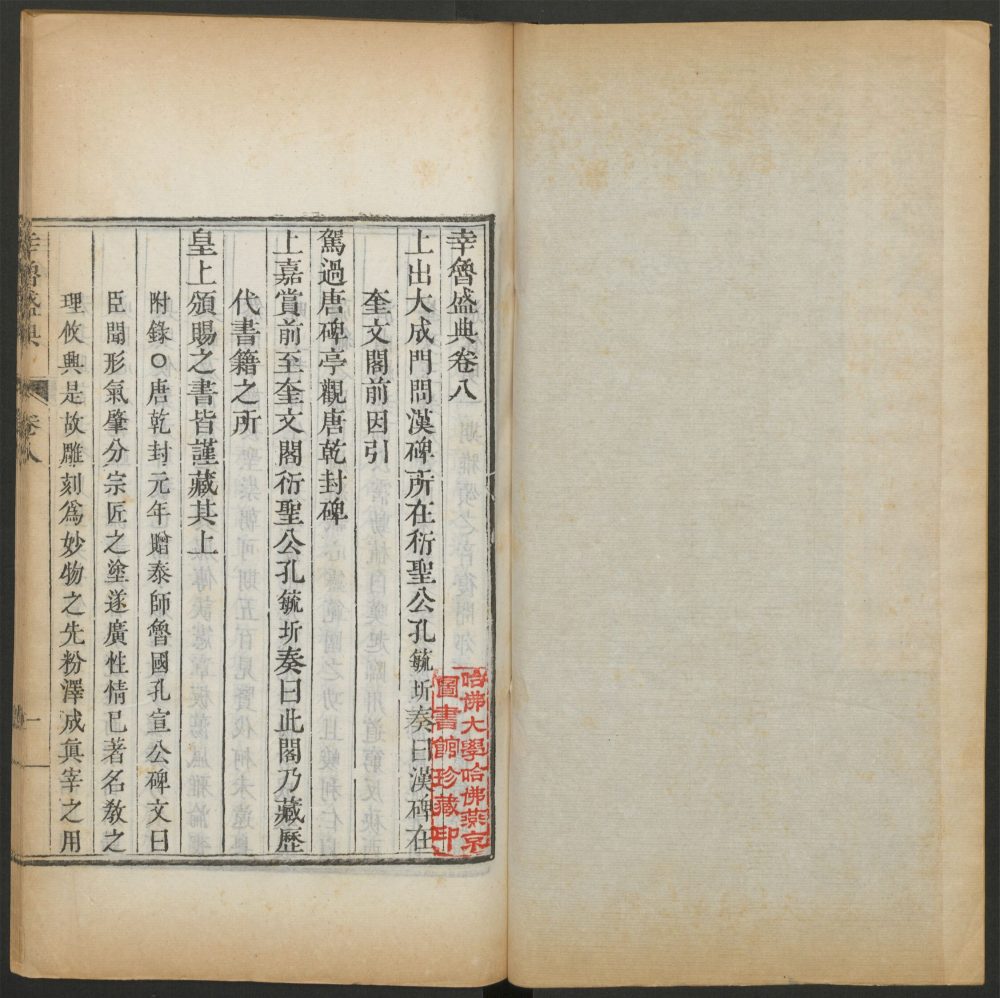 幸魯盛典卷八
上出大成門問漢碑所在衍聖公孔毓圻奏曰漢碑在
奎文閣前因引
駕過唐碑亭觀唐乾封碑
上嘉賞前至奎文閣衍聖公孔毓圻奏曰此閣乃藏歷
代書籍之所
皇上頒賜之書皆謹藏其上
附錄○唐乾封元年贈泰師魯國孔宣公碑文曰
臣聞形氣肇分宗匠之塗遂廣性情已著名教之
理攸興是故雕刻爲妙物之先粉澤成眞宰之用
幸魯盛典
卷八
一
哈佛大學哈佛燕京
圖書館珍藏印